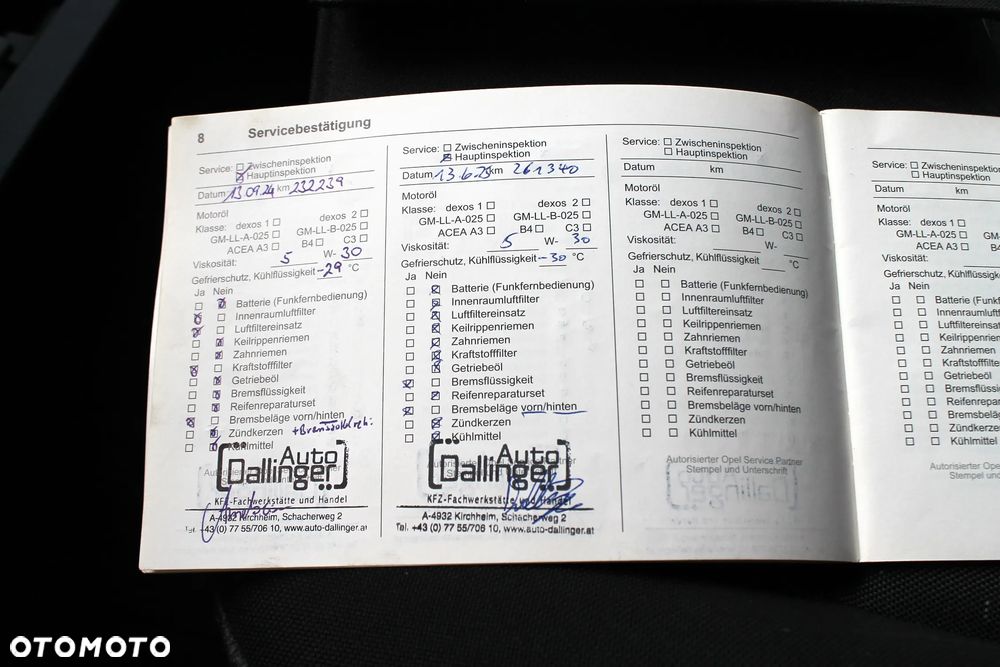 8 Servicebestätigung
Service: Zwischeninspektion
Hauptinspektion
Datum 13.09.24 km 232239
Motoröl
Klasse: dexos 1 dexos 2
GM-LL-A-025 GM-LL-B-025
ACEA A3 B4 C3
Viskosität: 5 W- 30
Gefrierschutz, Kühlflüssigkeit -29 °C
Ja Nein
Batterie (Funkfernbedienung)
Innenraumluftfilter
Luftfiltereinsatz
Keilrippenriemen
Zahnriemen
Kraftstofffilter
Getriebeöl
Bremsflüssigkeit
Reifenreparaturset
Bremsbeläge vorn/hinten
Zündkerzen
Kühlmittel
Autorisierter
Auto
Dallinger
KFZ-Fachwerkstätte und Handel
A-4932 Kirchheim, Schacherweg 2
Tel. +43 (0) 77 55/706 10, www.auto-dallinger.at
Service: Zwischeninspektion
Hauptinspektion
Datum 13.6.25 km 261340
Motoröl
Klasse: dexos 1 dexos 2
GM-LL-A-025 GM-LL-B-025
ACEA A3 B4 C3
Viskosität: 5 W- 30
Gefrierschutz, Kühlflüssigkeit -30 °C
Ja Nein
Batterie (Funkfernbedienung)
Innenraumluftfilter
Luftfiltereinsatz
Keilrippenriemen
Zahnriemen
Kraftstofffilter
Getriebeöl
Bremsflüssigkeit
Reifenreparaturset
Bremsbeläge vorn/hinten
Zündkerzen
Kühlmittel
Autorisierter Partner
Auto
Dallinger
KFZ-Fachwerkstätte und Handel
A-4932 Kirchheim, Schacherweg 2
Tel. +43 (0) 77 55/706 10, www.auto-dallinger.at
Service: Zwischeninspektion
Hauptinspektion
Datum km
Motoröl
Klasse: dexos 1 dexos 2
GM-LL-A-025 GM-LL-B-025
ACEA A3 B4 C3
Viskosität: W-
Gefrierschutz, Kühlflüssigkeit °C
Ja Nein
Batterie (Funkfernbedienung)
Innenraumluftfilter
Luftfiltereinsatz
Keilrippenriemen
Zahnriemen
Kraftstofffilter
Getriebeöl
Bremsflüssigkeit
Reifenreparaturset
Bremsbeläge vorn/hinten
Zündkerzen
Kühlmittel
Autorisierter Opel Service Partner
Stempel und Unterschrift
Service: Zwischeninspektion
Hauptinspektion
Datum km
Motoröl
Klasse: dexos 1
GM-LL-A-025 GM-L
ACEA A3 B4
Viskosität:
Gefrierschutz, Kühlflüssigke
Ja Nein
Batterie (Funkfernbed
Innenraumluftf
Luftfiltereinsatz
Keilrippenriemen
Zahnriemen
Kraftstofffilter
Getriebeöl
Bremsflüssi
Reifenreparaturs
Bremsbeläge vo
Zündkerzen
Kühlmittel
Autorisierter Opel
Stempel und
OTOMOTO